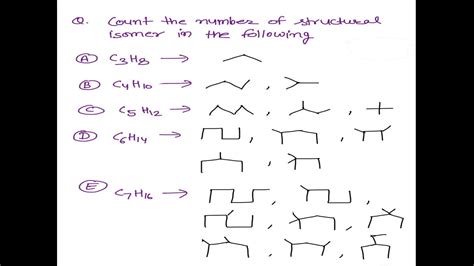 Q. Count the number of structural
isomer in the following
A C3H8 →
B C4H10 → ,
C C5H12 → , ,
D C6H14 → , ,
, 
E C7H16 → , ,
, , ,
, ,